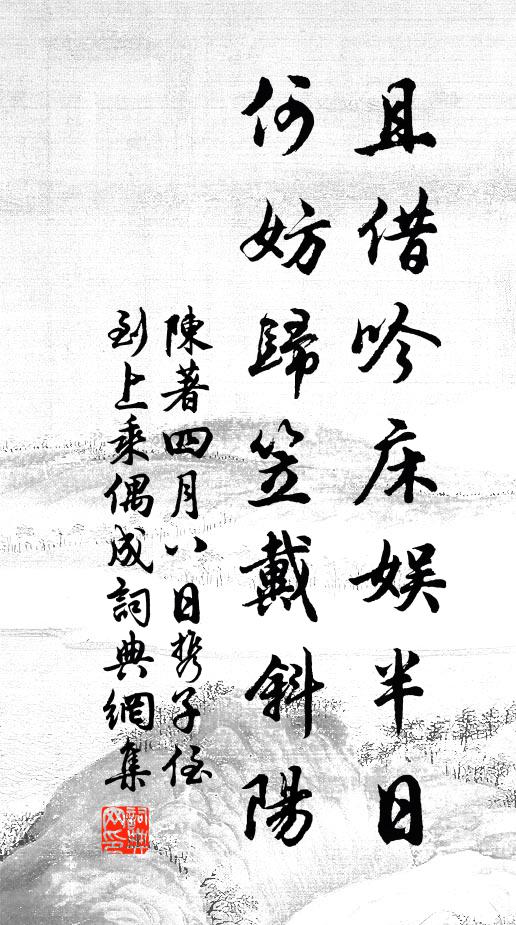 且借吟床娱半日
何妨歸笠戴斜陽
陳著四月八日携子侄
到上乘偶成詞典網集